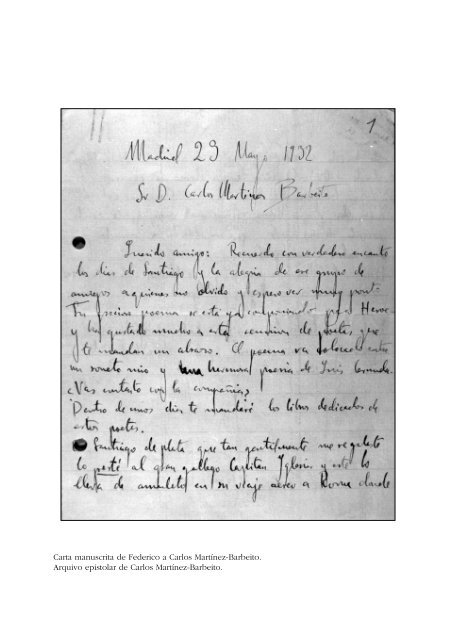 1
Madrid 23 Mayo 1932
Sr D. Carlos Martinez Barbeito
Querido amigo: Recuerdo con verdadero encanto
los dias de Santiago y la alegria de ese grupo de
amigos a quienes no olvido y espero ver muy pronto
Tu precioso poema se está ya componiendo para Heroe
y ha gustado mucho a esta comision de poetas que
te mandan un abrazo. El poema va colocado entre
un soneto mio y una hermosa poesia de Luis Cernuda.
¿Vas contento con la compañia?
Dentro de unos dias te mandaré los libros dedicados de
estos poetas.
Santiago de plata que tan gentilmente me regalaste
lo presté al gran gallego Capitan Iglesias y este lo
lleva de amuleto en su viaje aereo a Roma donde
Carta manuscrita de Federico a Carlos Martínez-Barbeito.
Arquivo epistolar de Carlos Martínez-Barbeito.